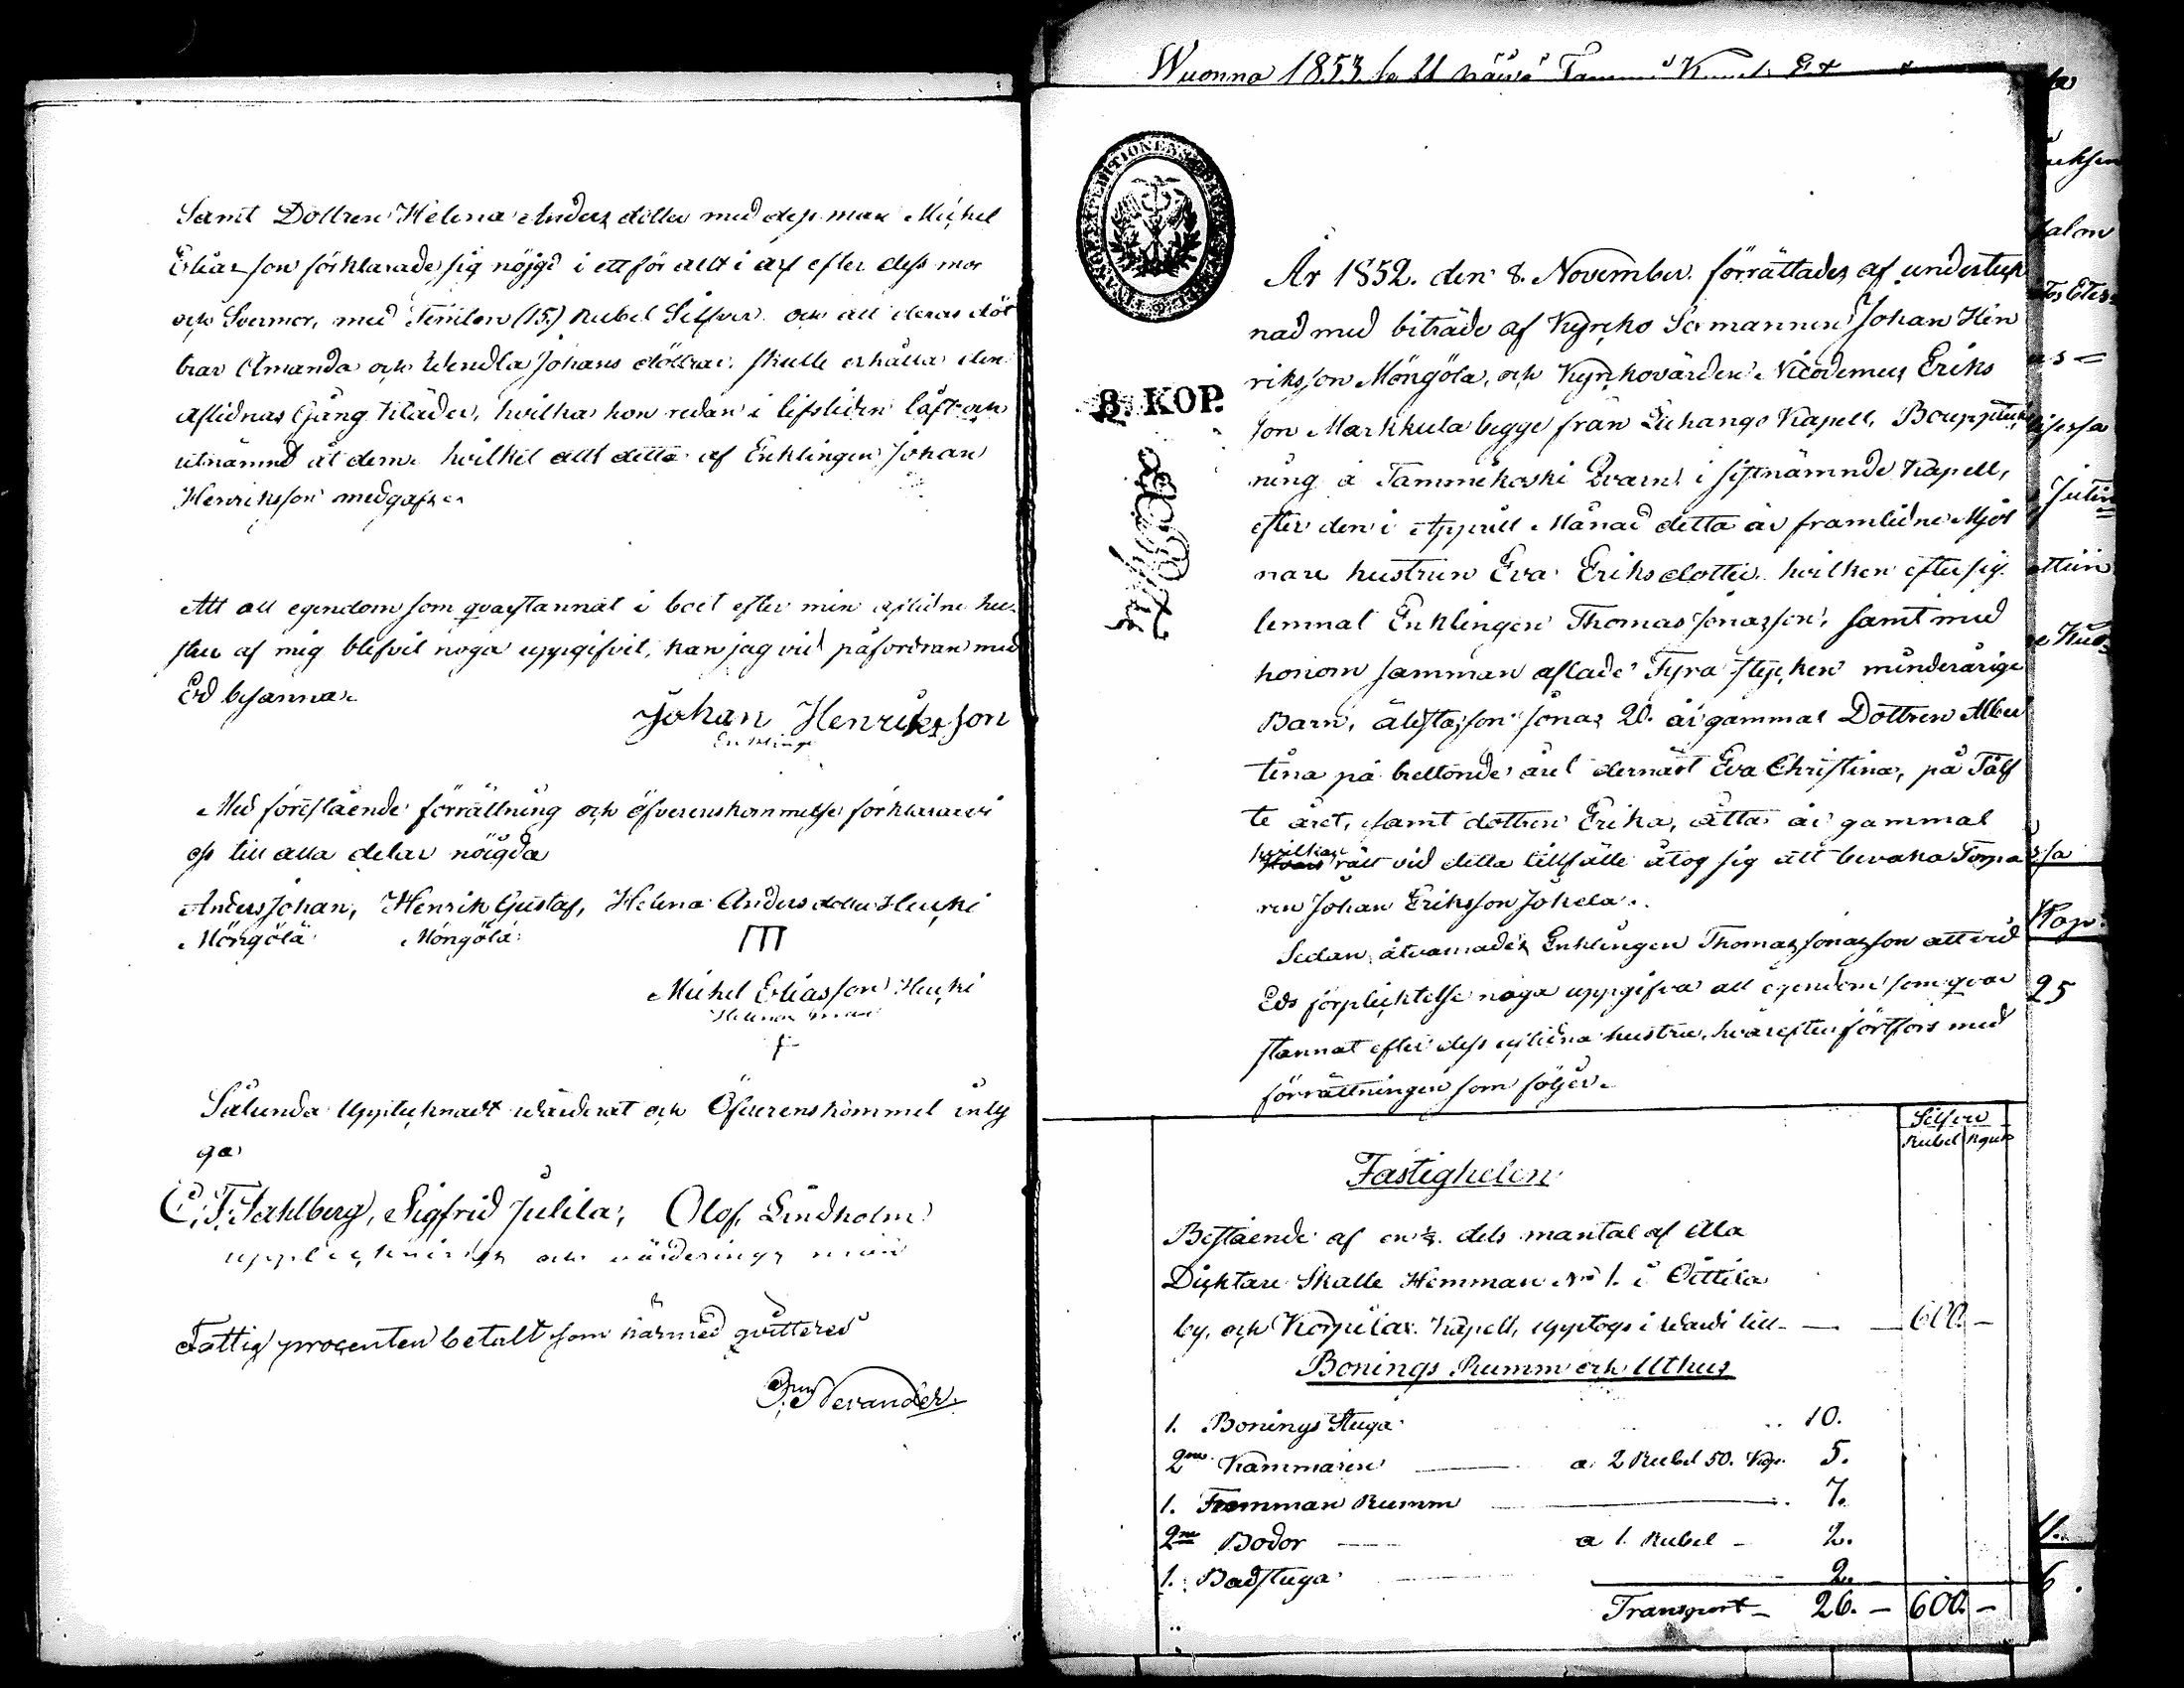 Samt Dottren Helena Anders dotter med dess man Michel
Eliasson förklarade sig nöjgd i ett för allt i arf efter dess mor
och Svermor, med Femton (15) Rubel Silfver och att deras döt
trar Amanda och Wendla Johans döttrar skulle erhålla den
aflidnas Gång kläder, hvilka hon redan i lifstiden låft och
utnämnd åt dem. hvilket allt detta af Enklingen Johan
Henriksson medgafs
Att all egendom som qvarstannat i boet efter min aflidne hu
stru af mig blifvit noga uppgifvit, kan jag vid påfordran med
Ed besanna
Johan Henriksson
Enkling
Med förestående förrättning och öfverenskommelse förklara vi
oss till alla delar nöigda
Anders Johan, Henrik Gustaf, Helena Anders dotter
Möngölä Möngölä
Michel Eliasson
Helenas man
Sålunda Upptecknadt värderat och Öfverenskommet intÿ
ga
C. F. Stahlberg, Sigfrid Julila, Olof Lindholm
upptecknings och värderings män
Fattig procenten betalt som härmed qvitteres
Nevander
Wuonna 1853
FINANCE EXPEDITIONENS
8. KOP.
År 1852. den 8. November förrättades af underteck
nad med biträde af Kyrcko Sexmannen Johan Hen
riksson Möngölä, och Kyrckovärden Nicodemus Eriks
son Markkula begge från Luhango Kapell, Bouppteck
ning å Tammikoski Qvarn i sistnämnde Kapell,
efter den i Appril Månad detta år framlidne Mjöl
nare hustrun Eva Eriksdotter hvilken efter sig
lemnat Enklingen Thomas Jonasson, samt med
honom samman aflade Fyra stycken minderårige
Barn, äldsta sson Jonas 20. år gammal Dottren Alber
tina på trettonde året dernäst Eva Christina, på Tålf
te året, samt dottren Erika, åtta år gammal
hvilkas rätt vid detta tillfälle åtog sig att bevaka Torpa
ren Johan Eriksson Jokela.
Sedan åtvarnades Enklingen Thomas Jonasson att vid
Eds förplicktelse noga uppgifva all egendom som qvar
stannat efter dess aflidna hustru, hvarefter fortfors med
förrättningen som följer
Silfver
Rubel Kopek
Fastigheten
Bestående af en ½ dels mantal af Alla
Dicktare Skatte Hemman No 1. i Oittila
by, och Korpilax Kapell, upptogs i värde till — 600. —
Bonings Rumm och Uthus
1. Bonings Stuga 10.
2ne Kammaren a 2 Rubel 50. Kop. 5.
1. Fremman Rumm 7.
2ne Bodor a 1. Rubel 2.
1. Badstuga 2.
Transport — 26. — 600. —